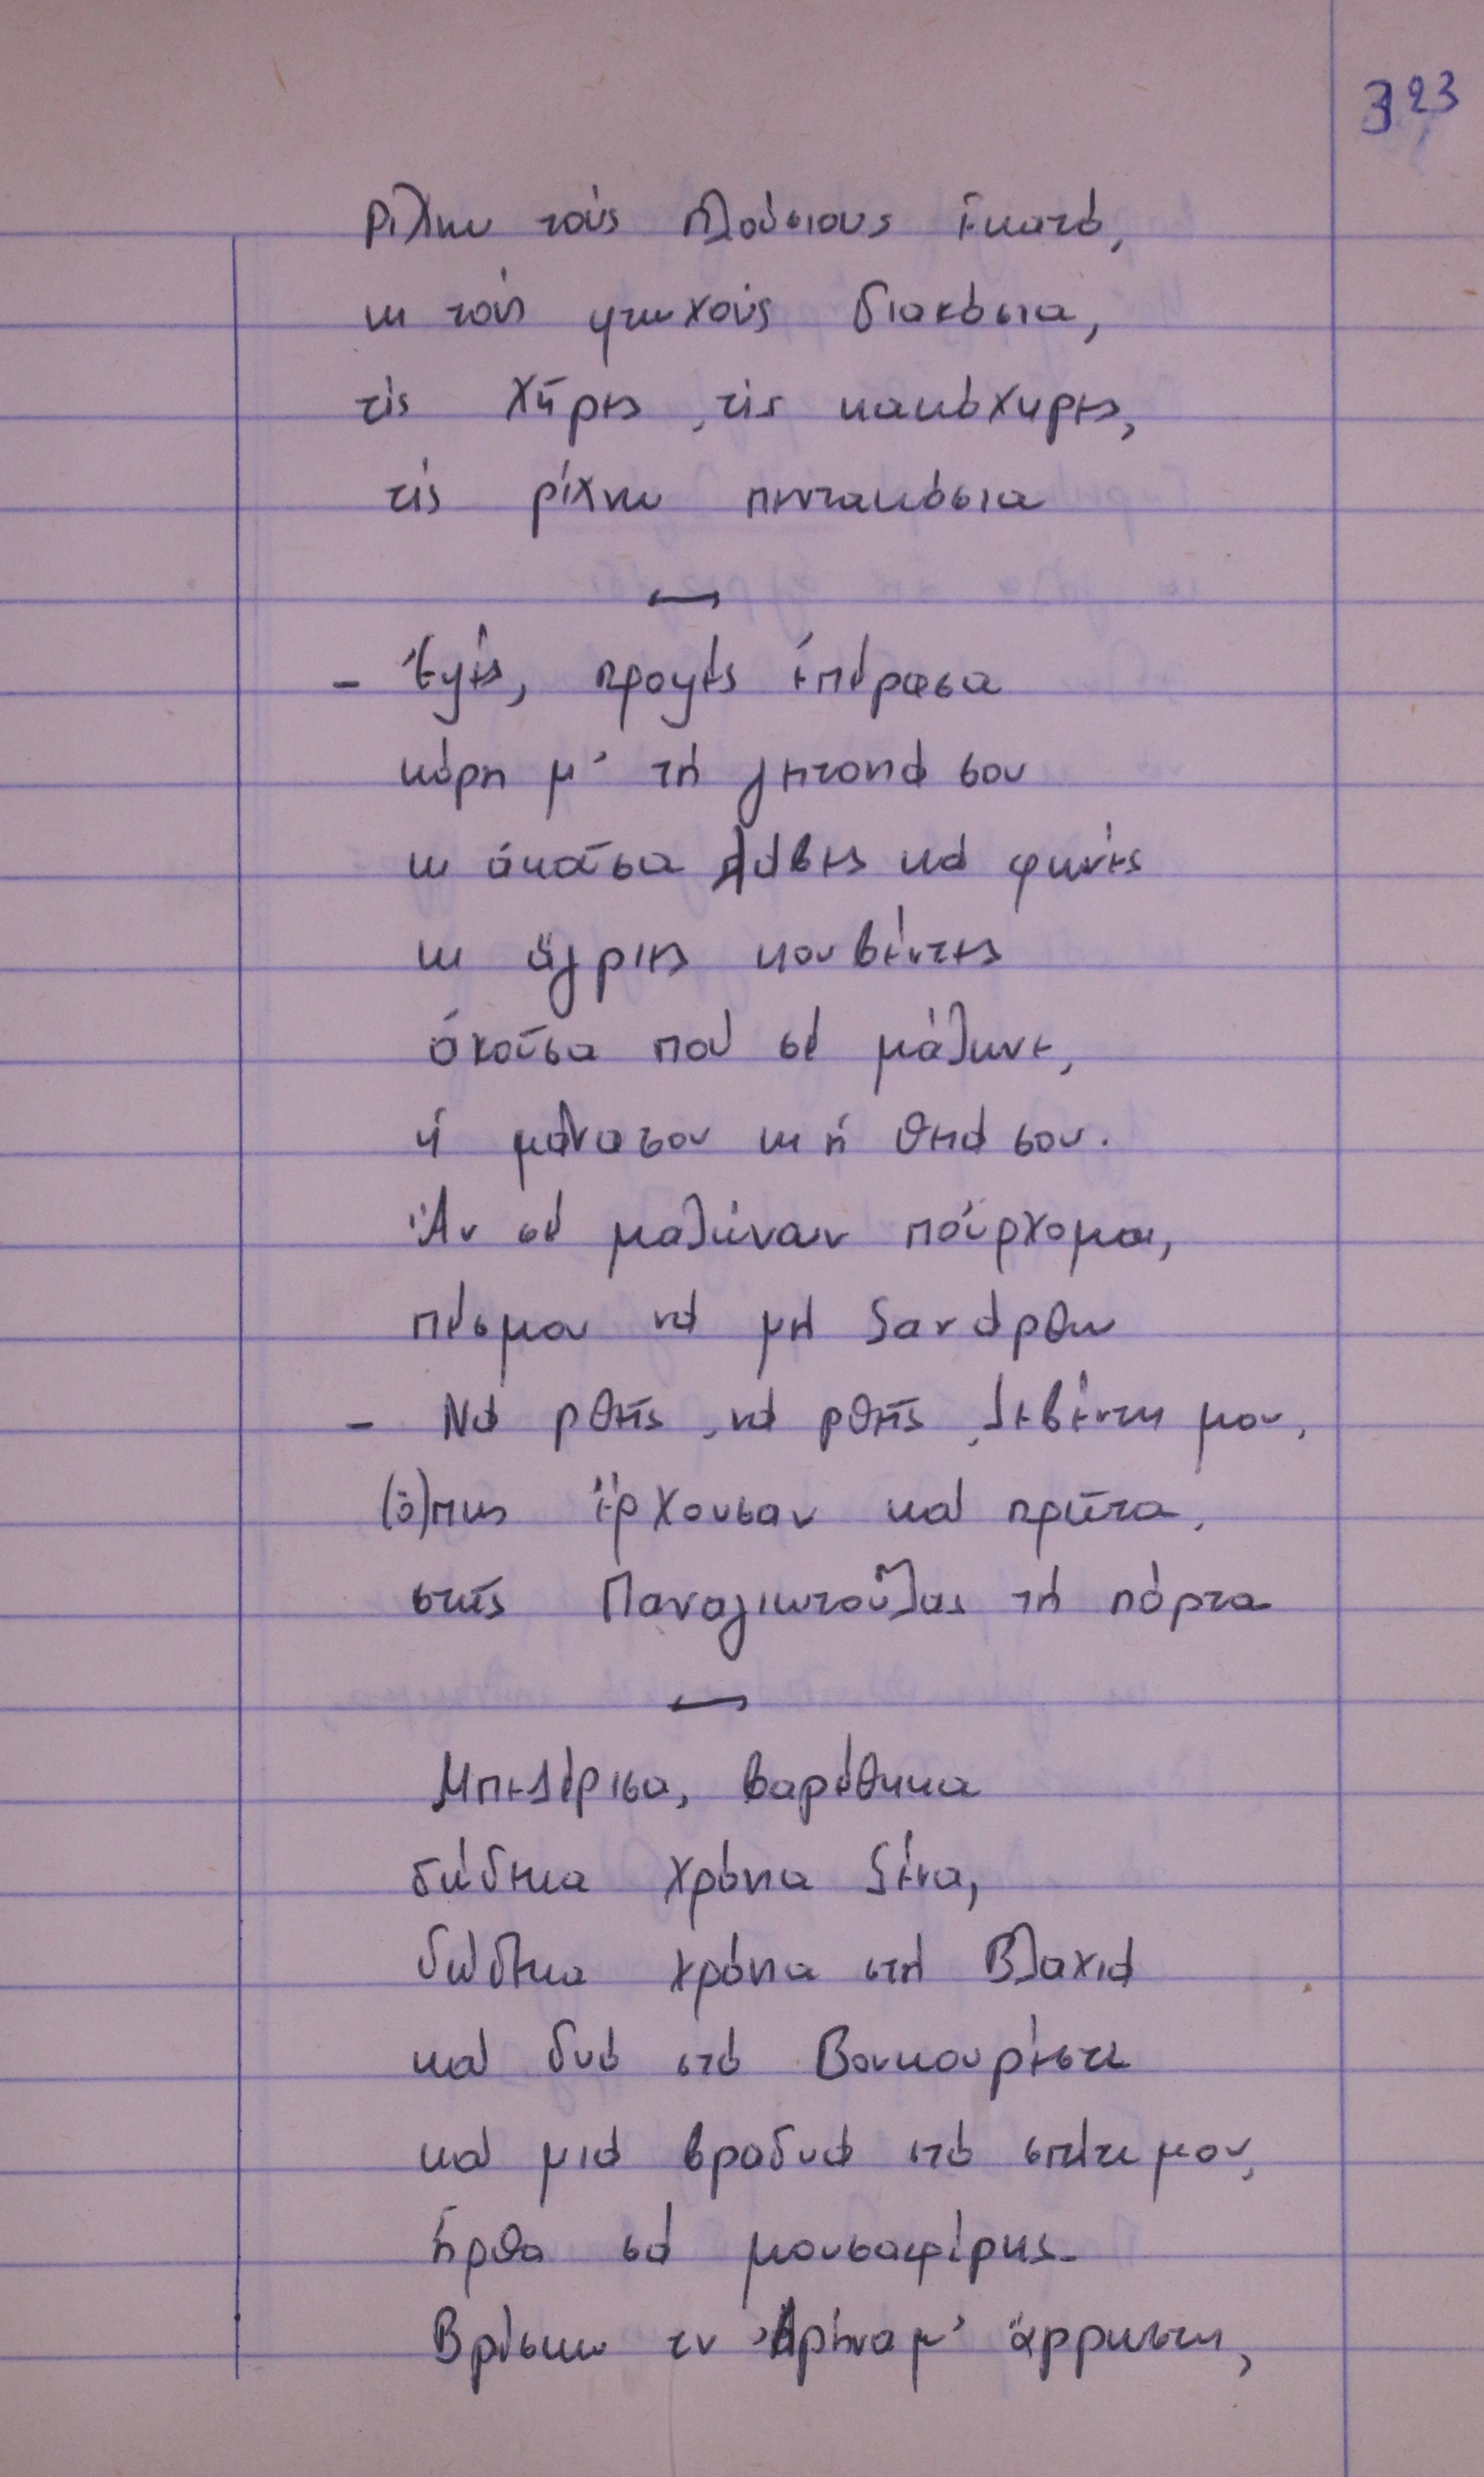 323
Ρίχνω τούς πλούσιους ἑκατό,
κι τούς φτωχούς διακόσια,
τίς χῆρες, τίς κακόχηρες,
τίς ρίχνω πεντακόσια
- Ἐψές, προψές ἐπέρασα
κόρη μ' τή γειτονιά σου
κι ἄκουσα λάβες καί φωνές
κι ἄγριες κουβέντες
ἄκουσα πού σέ μάλωνε,
ἡ μάνα σου κι ἡ θειά σου.
Ἄν σέ μαλώναν πούρχομαι,
πές μου νά μή ξανάρθω
- Νά ρθεῖς, νά ρθεῖς, λεβέντη μου,
(ὅ)πως ἔρχουσαν καί πρῶτα,
στῆς Παναγιωτούλας τή πόρτα
Μπεζέρισα, βαρέθηκα
δώδεκα χρόνια ξένα,
δώδεκα χρόνια στή Βλαχιά
καί δυό στό Βουκουρέστι
καί μιά βραδυά στό σπίτι μου,
ἦρθα σά μουσαφίρης.
Βρίσκω τν Ἀρήνα μ' ἄρρωστη,